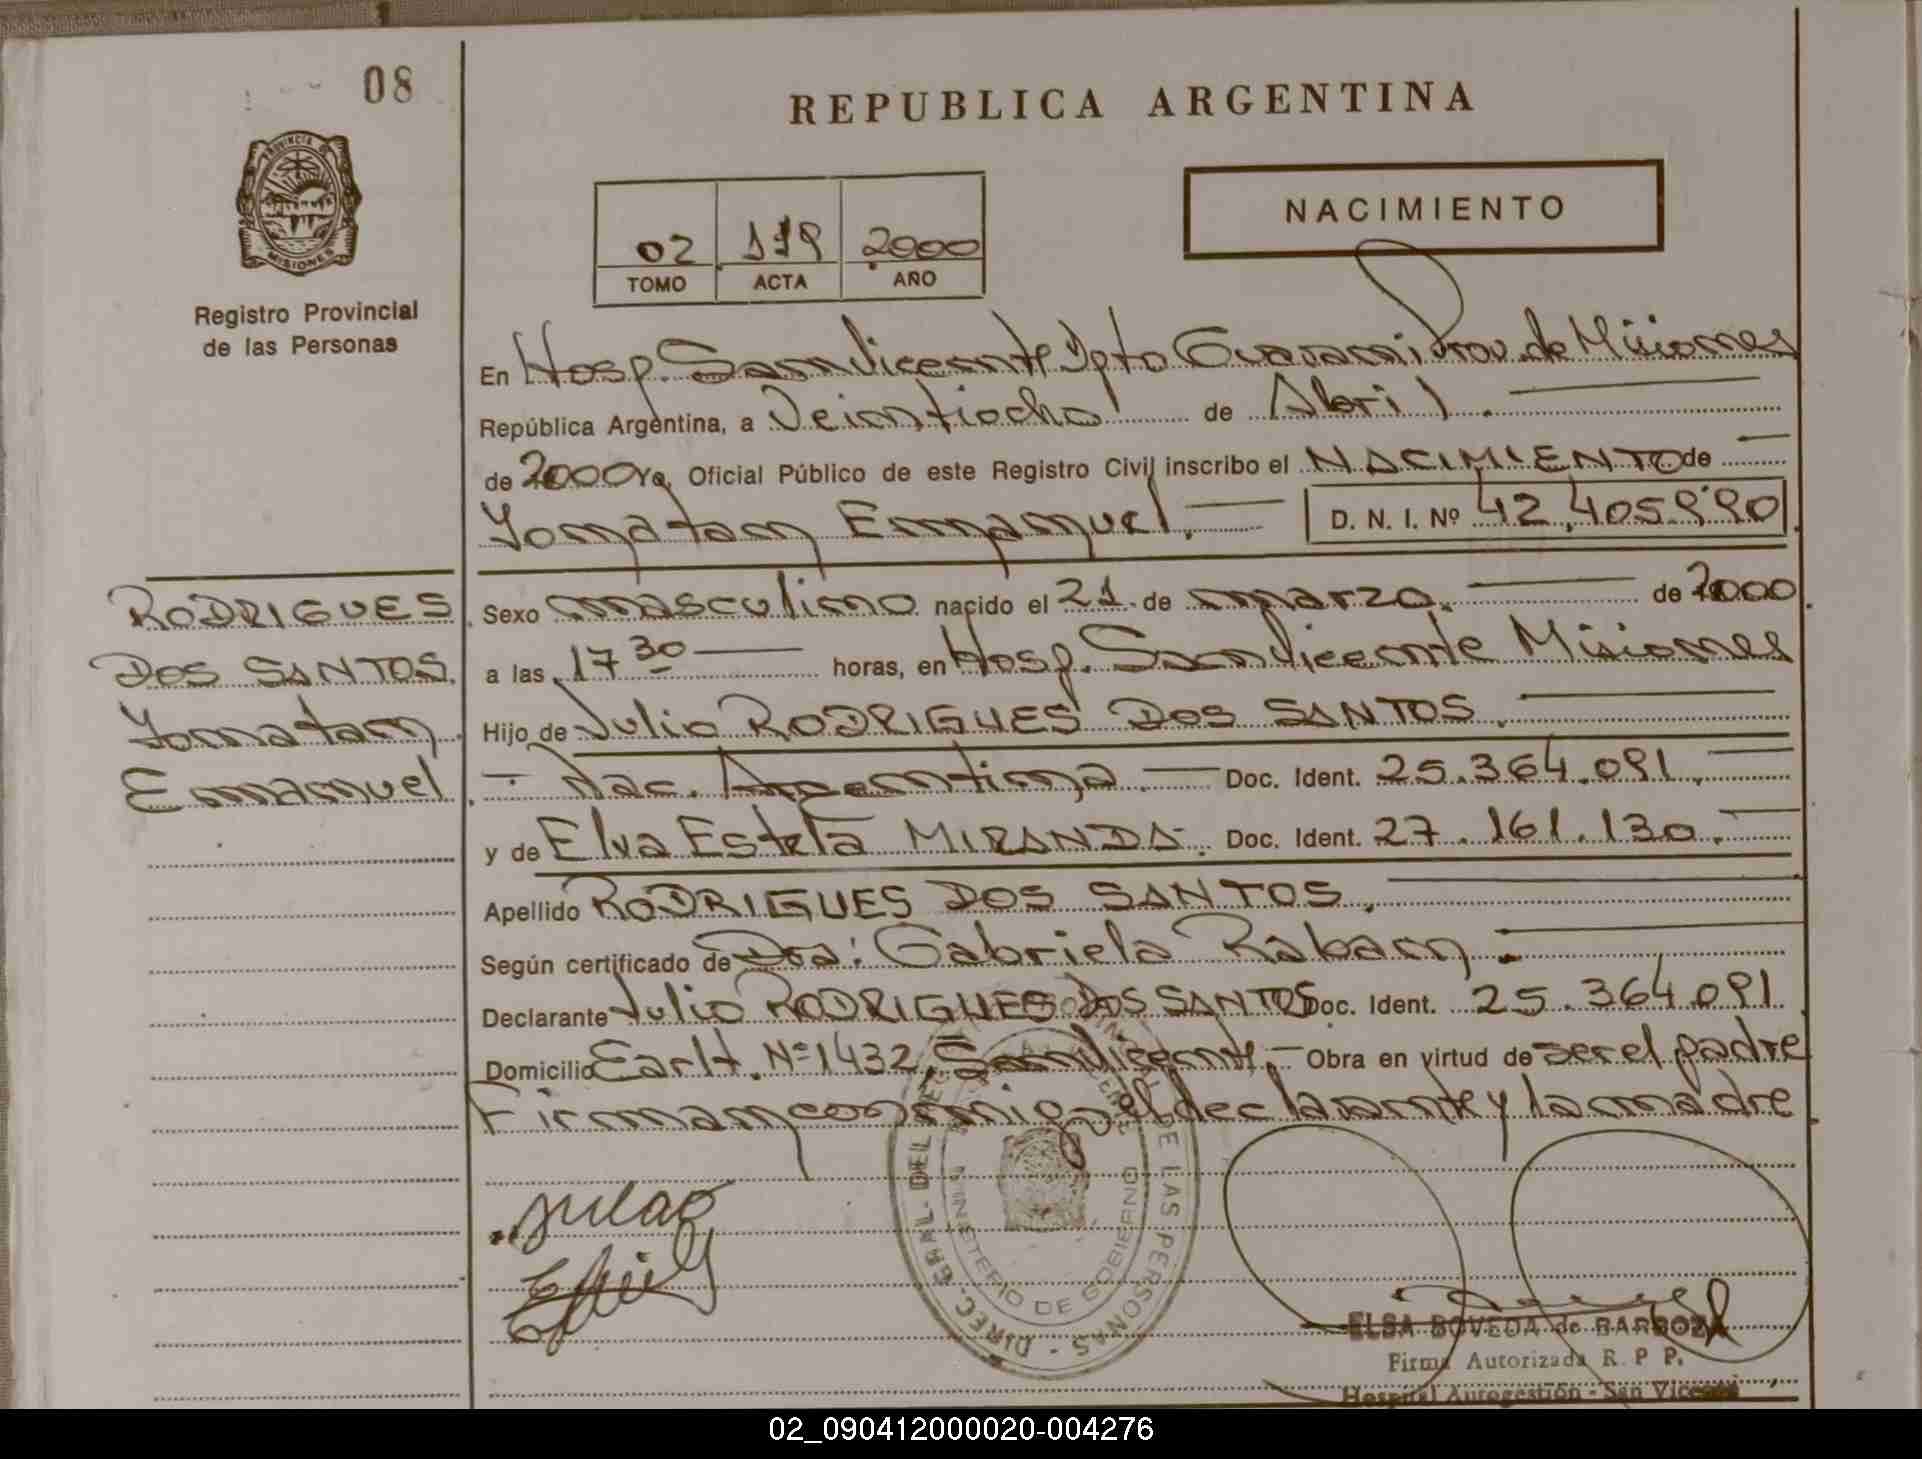 08
REPUBLICA ARGENTINA
PROVINCIA DE
MISIONES
NACIMIENTO
02 119 2000
TOMO ACTA AÑO
Registro Provincial
de las Personas
En Hosp. San Vicente Dpto Guarani Prov. de Misiones
República Argentina, a Veintiocho de Abril.
de 2000 Yo, Oficial Público de este Registro Civil inscribo el NACIMIENTO de
Yonatan Emanuel. D. N. I. Nº 42.405.990
RODRIGUES
DOS SANTOS
Yonatan
Emanuel
Sexo masculino nacido el 21 de marzo. de 2000
a las 17 30 horas, en Hosp. San Vicente Misiones
Hijo de Julio RODRIGUES DOS SANTOS.
Nac. Argentina. Doc. Ident. 25.364.091.
y de Elva Estela MIRANDA. Doc. Ident. 27.161.130.
Apellido RODRIGUES DOS SANTOS.
Según certificado de Dra: Gabriela Raban
Declarante Julio RODRIGUES DOS SANTOS Doc. Ident. 25.364.091
Domicilio Earlt. Nº 1432, San Vicente. Obra en virtud de ser el padre
Firman conmigo el declarante y la madre
DIREC. GRAL. DEL DE LAS PERSONAS
MINISTERIO DE GOBIERNO
ELSA BOVEDA de BARBOZA
Firma Autorizada R. P P.
Hospital Autogestión - San Vicente
02_090412000020-004276